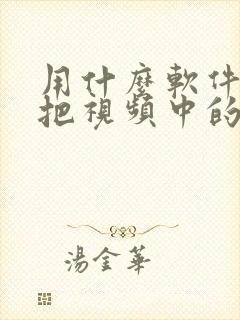 用什麼軟件
把視頻中的
湯金華